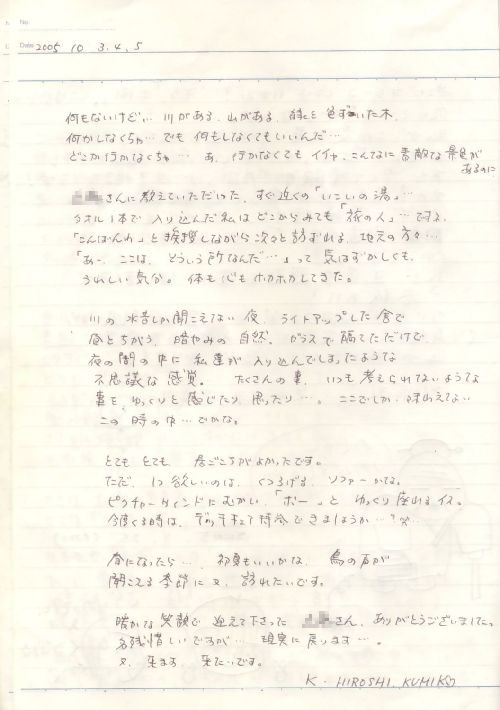 No.
Date 2005 10 3.4.5
何もないけど… 川がある、山がある、色づいた木、
何かしなくちゃ… でも 何もしなくてもいいんだ…
どこか行かなくちゃ… あ、行かなくても イイヤ、こんなに 素敵な 景色が
あるのに
さんに教えていただいた、すぐ近くの「いこいの湯」…
タオル1本で 入り込んだ私は どこからみても「旅の人」… ですよ
「こんばんわ」と 挨拶しながら 次々と 訪ずれる 地元の 方々…
「あー、ここは、どういう所なんだ…」って 気はずかしくも、
うれしい 気分。 体も 心も ホカホカしてきた。
川の 水音しか聞こえない 夜、ライトアップした 窓で
昼とちがう、暗やみの 自然。ガラスで 隔てただけで、
夜の闇の 中に 私達が 入り込んでしまったような
不思議な 感覚。 たくさんの 事、いつも 考えられないような
事を、ゆっくりと 感じたり、思ったり…。 ここでしか 味わえない
この 時の中… でかな。
とても とても 居ごこちが よかったです。
ただ、1つ 欲しいのは、くつろげる、ソファーかな。
ピクチャーウィンドに むかい、「ボー」と ゆっくり 座れる イス。
今度くる時は、 持参 できましょうか…?
春になったら… 初夏もいいかな、鳥の 声が
聞こえる 季節に 又、訪れたいです。
暖かな 笑顔で 迎えて下さった さん、ありがとうございました。
名残惜しいですが… 現実に 戻ります…。
又、来ます、来たいです。
K. HIROSHI. KUMIKO